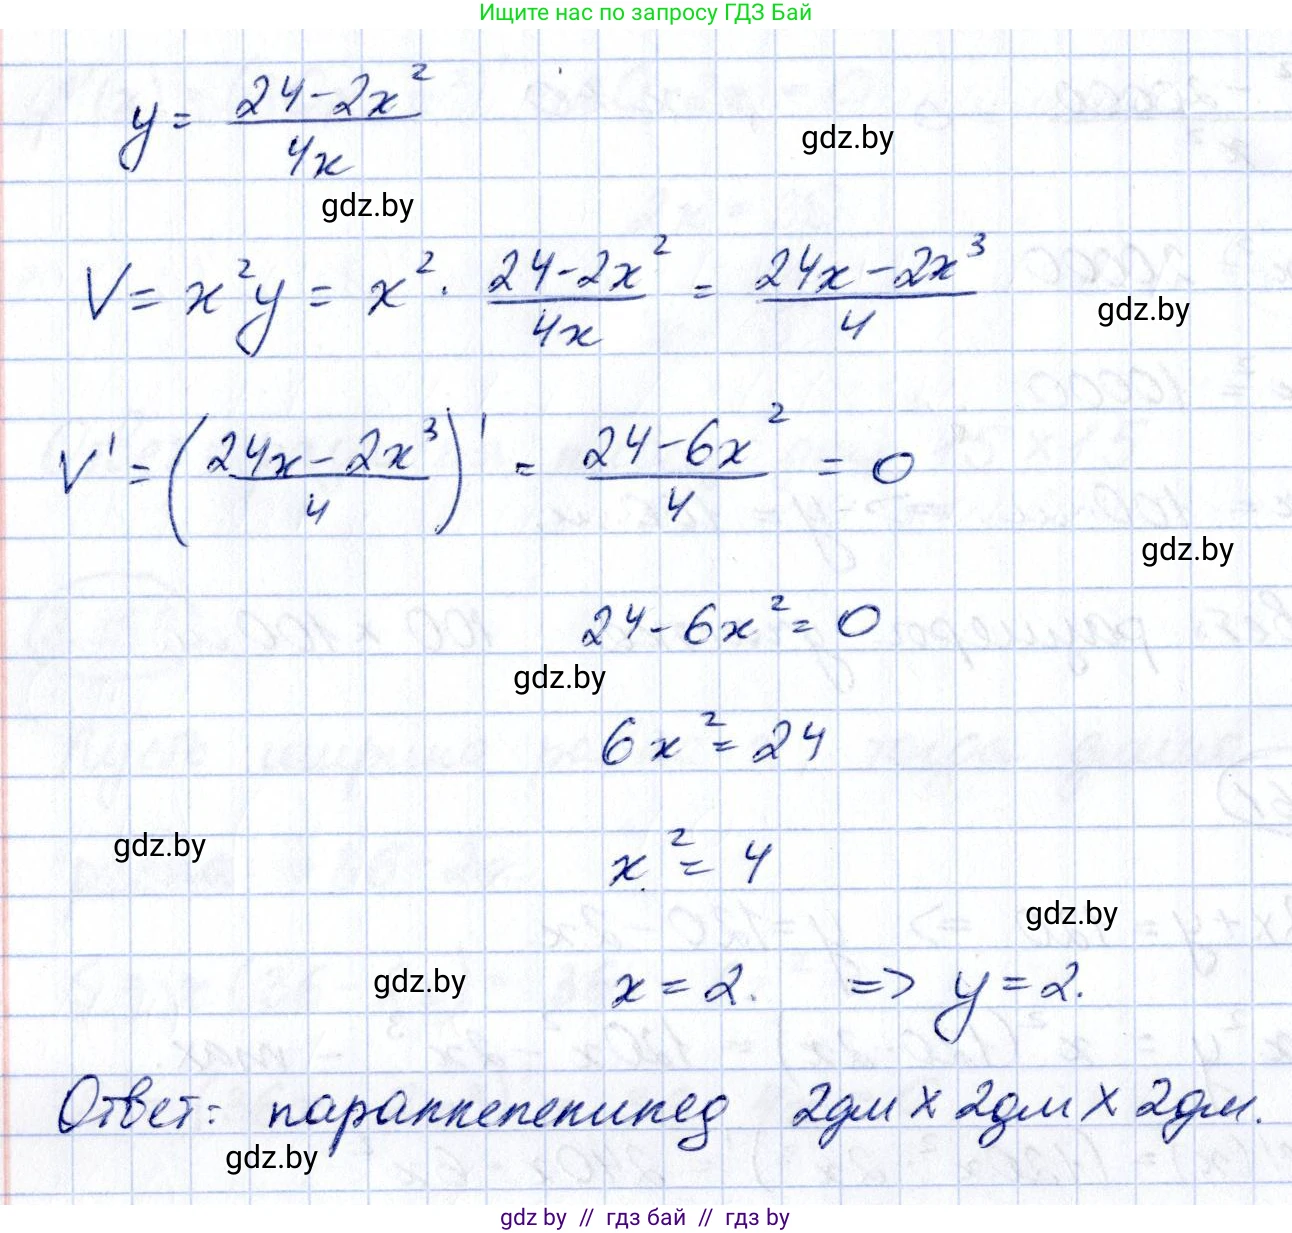 Ищите нас по запросу ГДЗ Бай
y = (24-2x²)/(4x)
gdz.by
gdz.by
V = x²y = x² · (24-2x²)/(4x) = (24x-2x³)/4
gdz.by
V' = ((24x-2x³)/4)' = (24-6x²)/4 = 0
gdz.by
24-6x² = 0
gdz.by
6x² = 24
gdz.by
x² = 4
gdz.by
gdz.by
x = 2. => y = 2.
Ответ: параллелепипед 2дм x 2дм x 2дм.
gdz.by
gdz by // гдз бай // гдз by